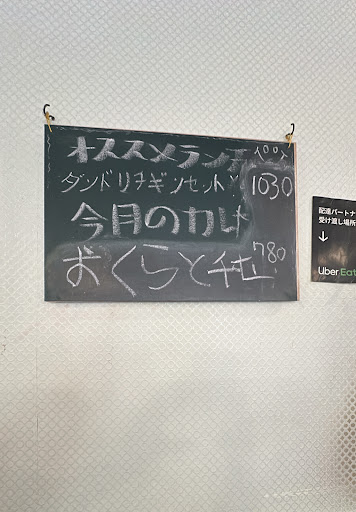 オススメランチ
ダンドリチギンセット ¥1030
今月のカレー
おくらとチキン 780
配達パートナ
受け渡し場所
↓
Uber Eat